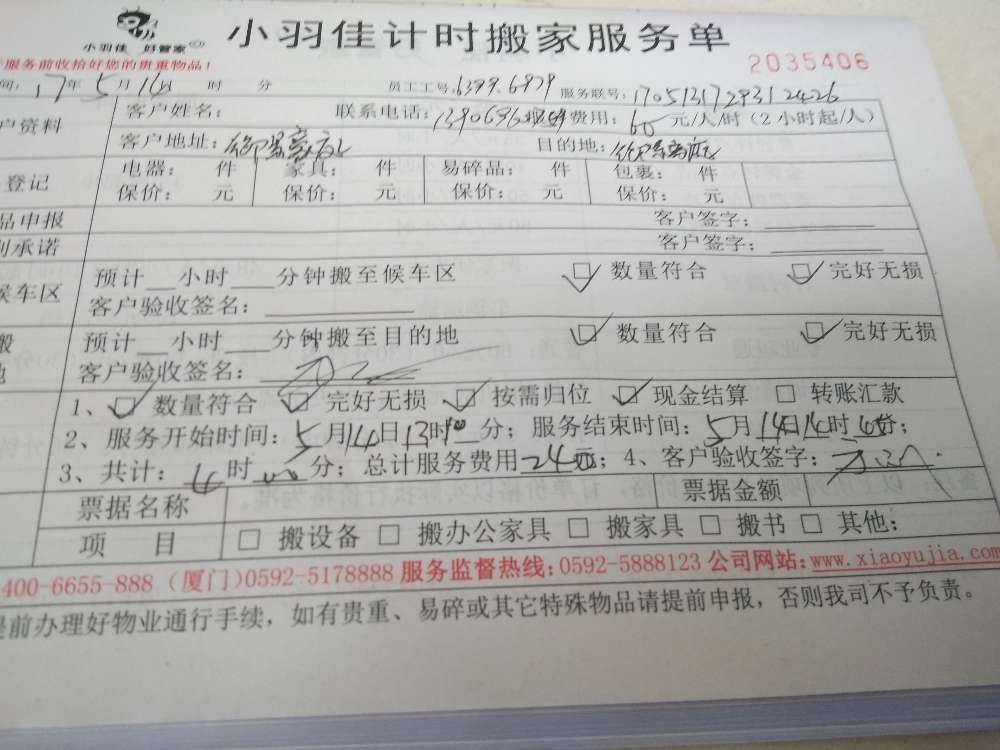 小羽佳 好管家
小羽佳计时搬家服务单
服务前收拾好您的贵重物品！
2035406
间：17年5月14日 时 分 员工工号：6399.6979 服务联号：1705131729312426
户资料 客户姓名： 联系电话： 费用：60元/人/时（2小时起/人）
客户地址： 目的地：
登记 电器： 件 家具： 件 易碎品： 件 包裹： 件
保价： 元 保价： 元 保价： 元 保价： 元
品申报 客户签字：
别承诺 客户签字：
候车区 预计 小时 分钟搬至候车区 数量符合 完好无损
客户验收签名：
搬 预计 小时 分钟搬至目的地 数量符合 完好无损
地 客户验收签名：
1、 数量符合 完好无损 按需归位 现金结算 □ 转账汇款
2、服务开始时间：5月14日13时 分；服务结束时间：5月14日 时 分；
3、共计：4时00分；总计服务费用240元；4、客户验收签字：
票据名称 票据金额
项 目 □ 搬设备 □ 搬办公家具 □ 搬家具 □ 搬书 □ 其他：
400-6655-888（厦门）0592-5178888 服务监督热线：0592-5888123 公司网站：www.xiaoyujia.com
提前办理好物业通行手续，如有贵重、易碎或其它特殊物品请提前申报，否则我司不予负责。